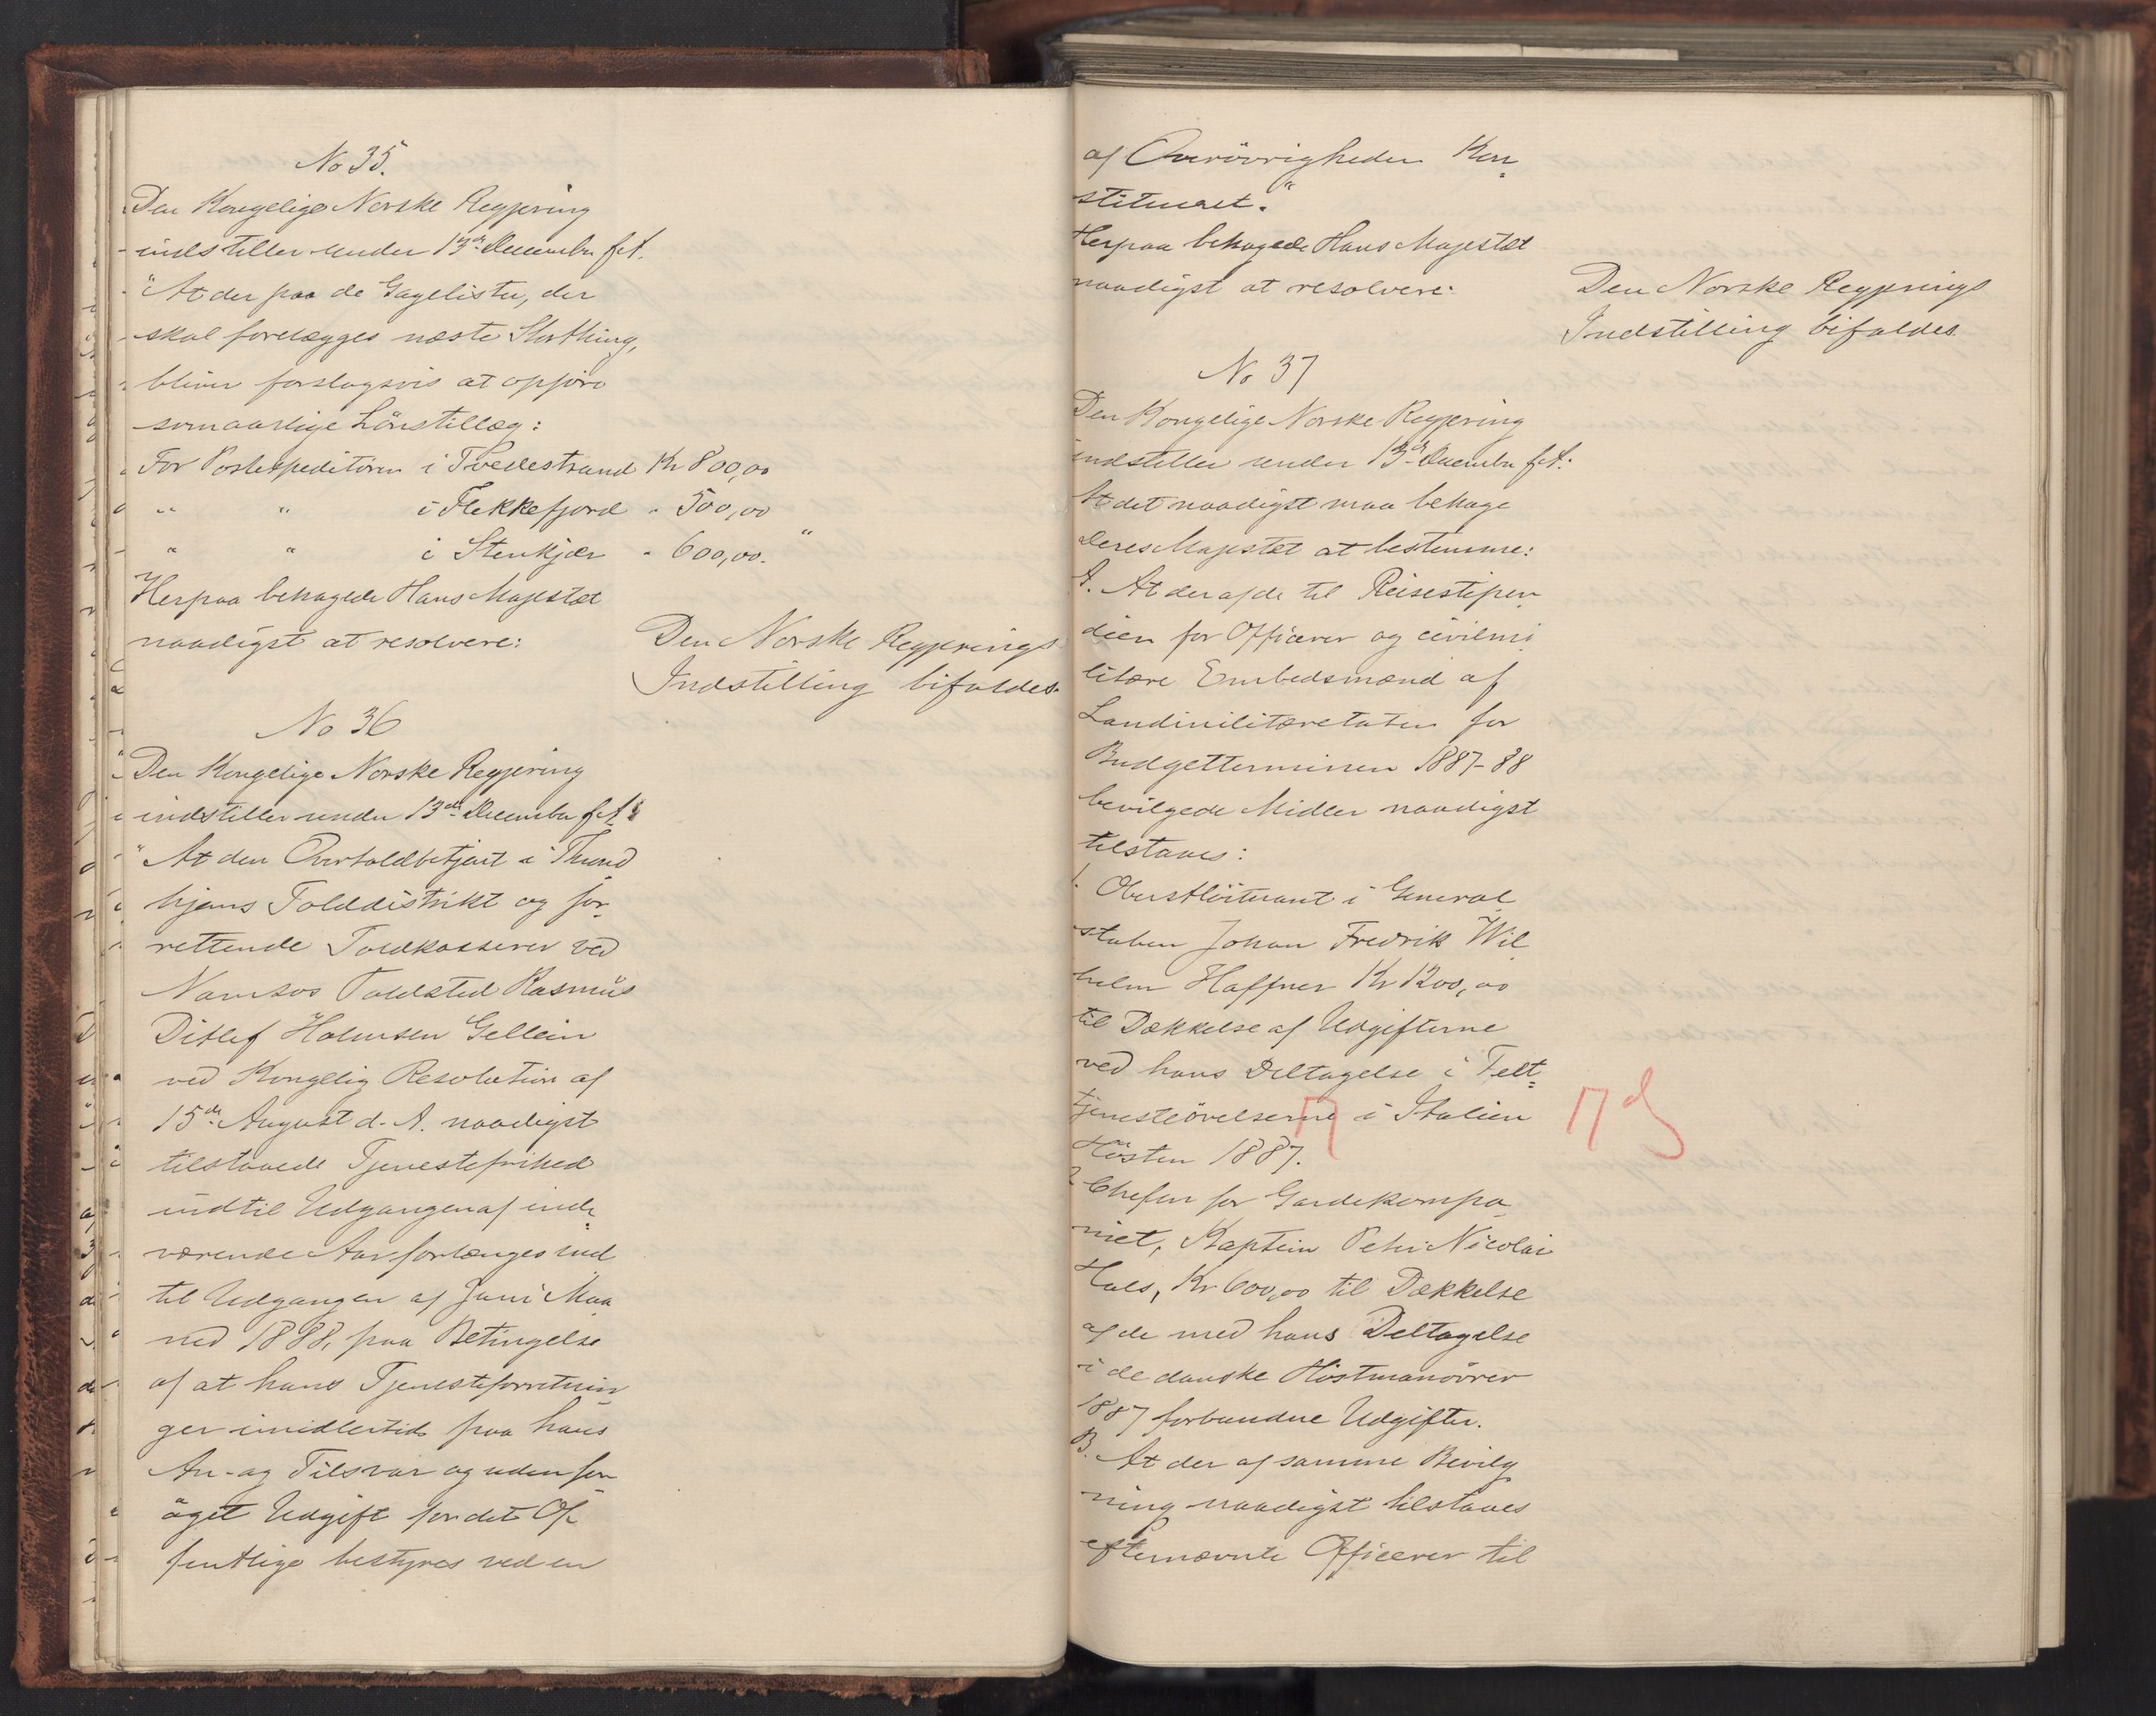 No 35.
Den Kongelige Norske Regjering
indstiller under 13de December f.A.
"At der paa de Gagelister, der
skal forelægges næste Storthing,
bliver forslagsvis at opføre
som aarlige Lønstillæg:
For Postexpeditøren i Tvedestrand Kr 800,00
" " i Flekkefjord " 500,00
" " i Stenkjær " 600,00. "
Herpaa behagede Hans Majestæt
naadigst at resolvere:
Den Norske Regjerings
Indstilling bifaldes.
No 36
Den Kongelige Norske Regjering
indstiller under 13de December f.A:
"At den Overtoldbetjent i Thrond
hjems Tolddistrikt og for-
rettende Toldkasserer ved
Namsos Toldsted Rasmus
Ditlef Holmsen Gellein
ved Kongelig Resolution af
15de August d. A. naadigst
tilstaaede Tjenestefrihed
indtil Udgangen af inde-
værende Aar forlænges ind
til Udgangen af Juni Maa
ned 1888, paa Betingelse
af at hans Tjenesteforretnin-
ger imidlertid paa hans
An- og Tilsvar og uden for-
øget Udgift for det Of-
fentlige bestyres ved en
af Overøvrigheden Kon-
stitueret."
Herpaa behagede Hans Majestæt
naadigst at resolvere:
Den Norske Regjerings
Indstilling bifaldes.
No 37
Den Kongelige Norske Regjering
indstiller under 13de December f.A:
At det naadigst maa behage
Deres Majestæt at bestemme:
A. At der af de til Reisestipen-
dien for Officerer og civilmi-
litære Embedsmænd af
Landmilitæretaten for
Budgetterminen 1887-88
bevilgede Midler naadigst
tilstaaes:
1. Oberstløitnant i General-
staben Johan Fredrik Wil-
helm Haffner Kr 1200,00
til Dækkelse af Udgifterne
ved hans Deltagelse i Felt-
tjenesteøvelserne i Italien
Høsten 1887.
2 Chefen for Gardekompa-
niet, Kaptein Peter Nicolai
Hals, Kr 600,00 til Dækkelse
af de med hans Deltagelse
i de danske Høstmanøvrer
1887 forbundne Udgifter.
B. At der af samme Bevilg-
ning naadigst tilstaaes
efternævnte Officerer til